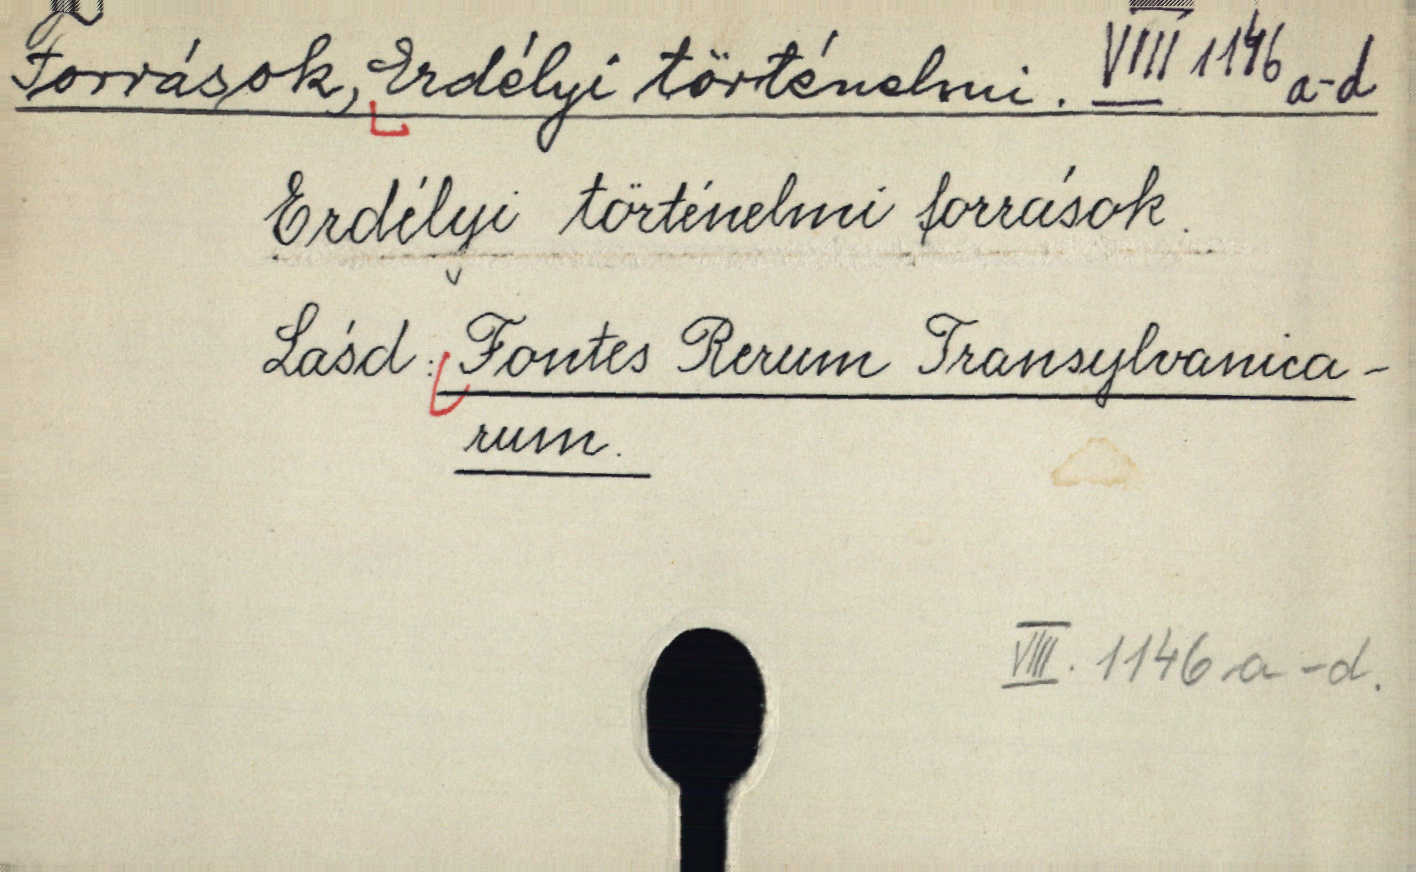 Források, Erdélyi történelmi. VIII 1146 a-d
Erdélyi történelmi források.
Lásd: Fontes Rerum Transylvanica-
rum.
VIII. 1146 a-d.